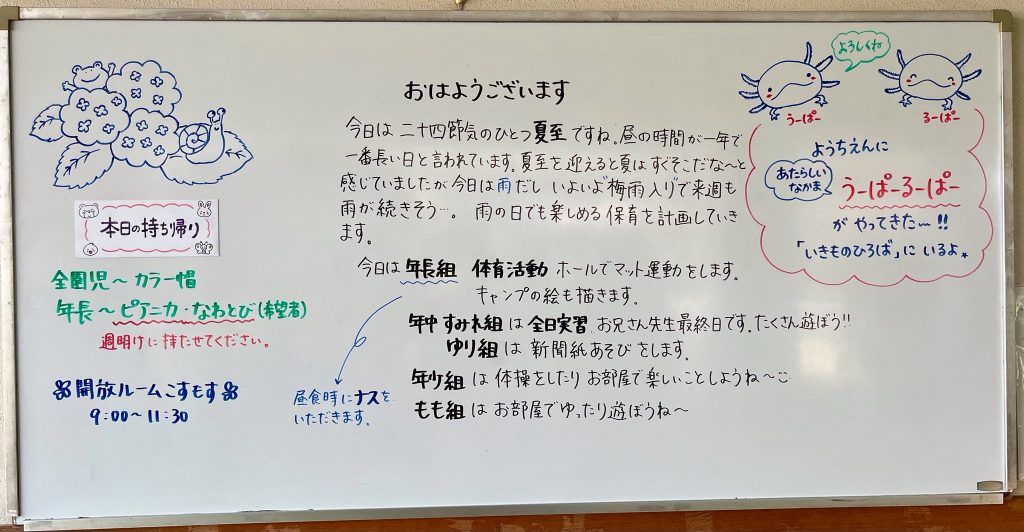 おはようございます
今日は 二十四節気のひとつ 夏至 ですね。昼の時間が一年で
一番長い日と言われています。夏至を迎えると夏はすぐそこだな〜と
感じていましたが 今日は雨だし いよいよ"梅雨入り"で来週も
雨が続きそう…。 雨の日でも楽しめる保育を計画していき
ます。
今日は 年長組 体育活動 ホールでマット運動をします。
キャンプの絵も描きます。
昼食時にナスを
いただきます。
年中 すみれ組 は 全日実習 お兄さん先生最終日です。たくさん遊ぼう!!
ゆり組 は 新聞紙あそび をします。
年少組 は 体操をしたり お部屋で楽しいことしようね〜
もも組 は お部屋でゆったり遊ぼうね〜
本日の持ち帰り
全園児〜 カラー帽
年長〜 ピアニカ・なわとび(希望者)
週明けに持たせてください。
開放ルームこすもす
9:00〜11:30
よろしくね
うーぱー
るーぱー
ようちえんに
あたらしい
なかま
うーぱーるーぱー
が やってきた〜!!
「いきものひろば」に いるよ。